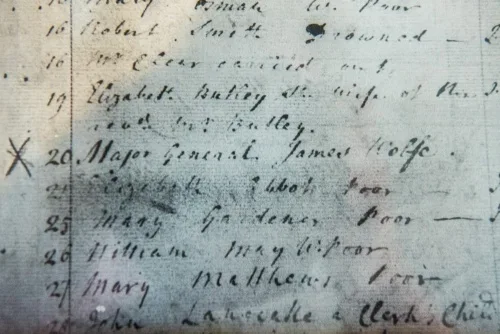 Mary W. Poor
16 Robert Smith Drowned —
16 Mr Clear carried out,
19 Elizabeth Butley the wife of the
revd. Mr. Butley.
20. Major General James Wolfe.
Elizabeth Poor —
25 Mary Gardener Poor —
26 William May W. Poor
27 Mary Matthews Poor
28 John Lancake a Clerk's Child